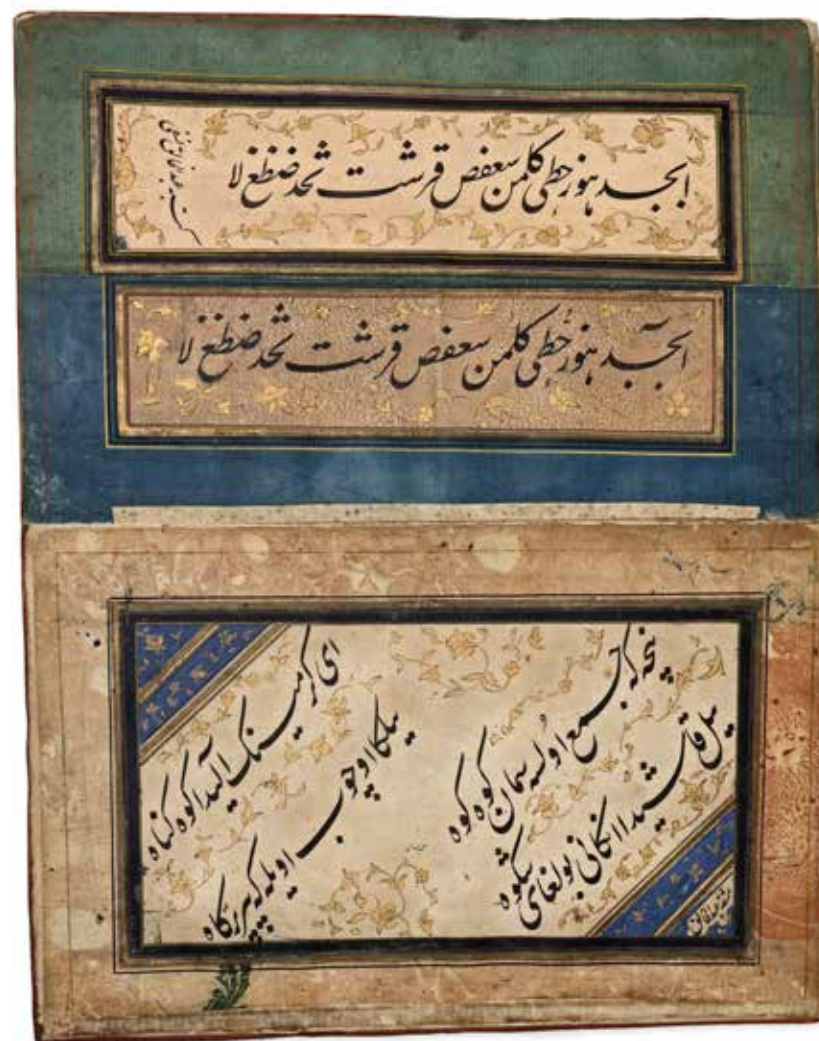 ابجد هوز حطی کلمن سعفص قرشت ثخذ ضظغ لا
ابجد هوز حطی کلمن سعفص قرشت ثخذ ضظغ لا
نیچه که جمع اولسه سمان کوه کوه
ییل قاشیدا انکا نی بولغای شکوه
ای کرمینک الیدا کوه کناه
ییلکا اوچوب اویله که بیر پر کاه